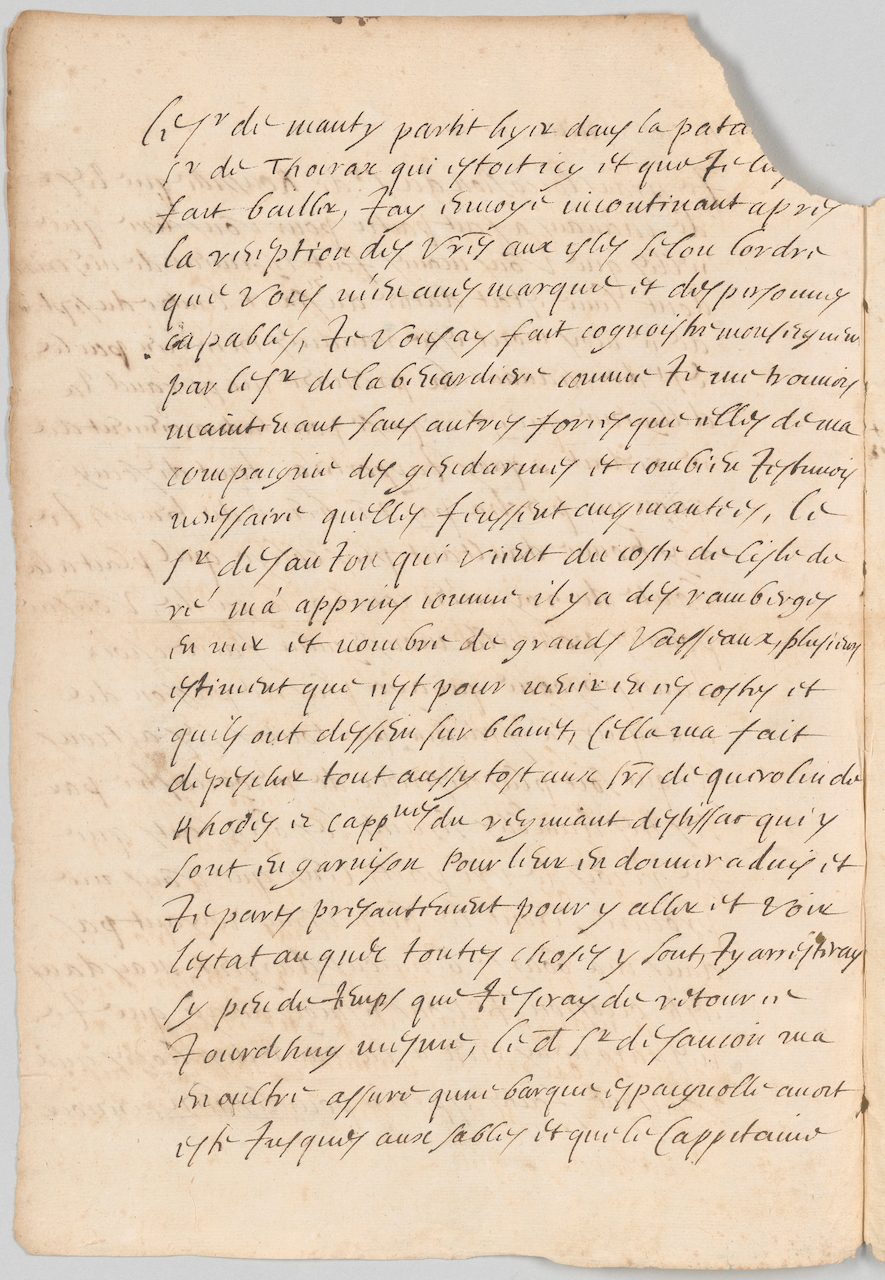 Le sr de manty partit hyer dans la pata
sr de Thoirax qui estoit icy et que Je luy
fait bailler, J'ay envoyé incontinant apres
la reception des vres aux isles selon lordre
que vous m'en aues marqué et des personnes
capables, Je vous ay fait cognoistre monseigneur
par le sr de la benardiere comme Je me trouuois
maintenant sans autres forces que celles de ma
compaignie des gendarmes et combien Jestimois
necessaire quelles feussent augmantees, Le
sr de sauion qui vient du coste de lisle de
ré m'a apprins comme il y a des ramberges
en mer et nombre de grands vaisseaux, plusieurs
estiment que cest pour venir en ces costes et
quils ont dessein sur blauet, Cella ma fait
depescher tout aussy tost aux srs de querolin de
Rhodes et cappnes du regimant destissac qui y
sont en garnison pour leur en donner aduis et
Je parts presantement pour y aller et voir
lestat auquel toutes choses y sont, Jy arresteray
sy peu de temps que Je seray de retour ce
Jourdhuy mesme, Le dt sr de sauion ma
en oultre assuré qune barque espaignolle auoit
esté Jusques aux sables et que le Cappitaine